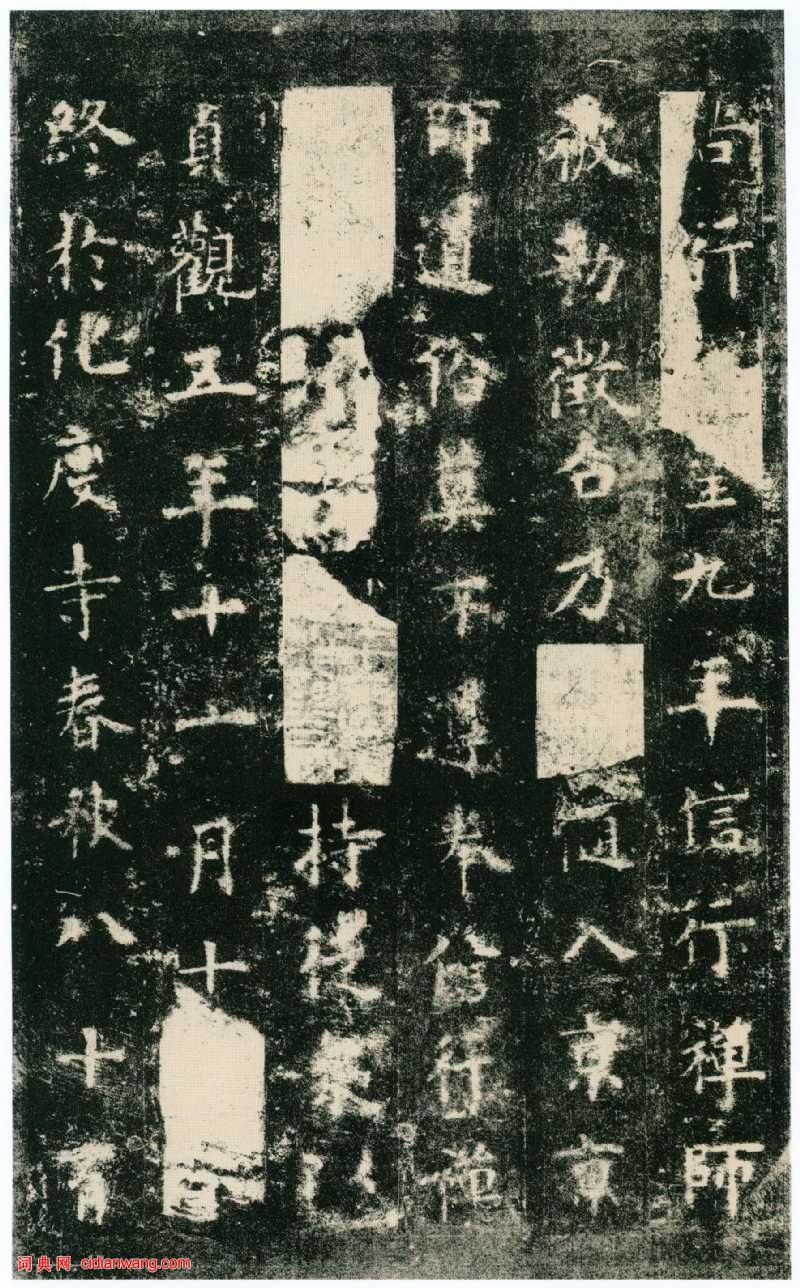 尚行 至九年信行禪師
被勑徵召乃 随入京京
師道俗莫不遵奉信行禪
持徒衆以
貞觀五年十一月十
終於化度寺春秋八十有
词典网·cidianwang.com